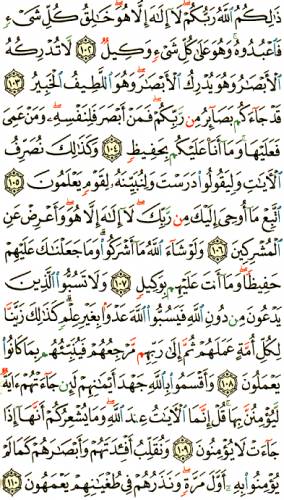 ذَٰلِكُمُ ٱللَّهُ رَبُّكُمْ لَآ إِلَٰهَ إِلَّا هُوَ ۖ خَٰلِقُ كُلِّ شَىْءٍ
فَٱعْبُدُوهُ ۚ وَهُوَ عَلَىٰ كُلِّ شَىْءٍ وَكِيلٌ ١٠٢ لَّا تُدْرِكُهُ
ٱلْأَبْصَٰرُ وَهُوَ يُدْرِكُ ٱلْأَبْصَٰرَ ۖ وَهُوَ ٱللَّطِيفُ ٱلْخَبِيرُ ١٠٣
قَدْ جَآءَكُم بَصَآئِرُ مِن رَّبِّكُمْ ۖ فَمَنْ أَبْصَرَ فَلِنَفْسِهِۦ ۖ وَمَنْ عَمِىَ
فَعَلَيْهَا ۚ وَمَآ أَنَا۠ عَلَيْكُم بِحَفِيظٍ ١٠٤ وَكَذَٰلِكَ نُصَرِّفُ
ٱلْءَايَٰتِ وَلِيَقُولُوا۟ دَرَسْتَ وَلِنُبَيِّنَهُۥ لِقَوْمٍ يَعْلَمُونَ ١٠٥
ٱتَّبِعْ مَآ أُوحِىَ إِلَيْكَ مِن رَّبِّكَ ۖ لَآ إِلَٰهَ إِلَّا هُوَ ۖ وَأَعْرِضْ عَنِ
ٱلْمُشْرِكِينَ ١٠٦ وَلَوْ شَآءَ ٱللَّهُ مَآ أَشْرَكُوا۟ ۗ وَمَا جَعَلْنَٰكَ عَلَيْهِمْ
حَفِيظًا ۖ وَمَآ أَنتَ عَلَيْهِم بِوَكِيلٍ ١٠٧ وَلَا تَسُبُّوا۟ ٱلَّذِينَ
يَدْعُونَ مِن دُونِ ٱللَّهِ فَيَسُبُّوا۟ ٱللَّهَ عَدْوًۢا بِغَيْرِ عِلْمٍ ۗ كَذَٰلِكَ زَيَّنَّا
لِكُلِّ أُمَّةٍ عَمَلَهُمْ ثُمَّ إِلَىٰ رَبِّهِم مَّرْجِعُهُمْ فَيُنَبِّئُهُم بِمَا كَانُوا۟
يَعْمَلُونَ ١٠٨ وَأَقْسَمُوا۟ بِٱللَّهِ جَهْدَ أَيْمَٰنِهِمْ لَئِن جَآءَتْهُمْ ءَايَةٌ
لَّيُؤْمِنُنَّ بِهَا ۚ قُلْ إِنَّمَا ٱلْءَايَٰتُ عِندَ ٱللَّهِ ۖ وَمَا يُشْعِرُكُمْ أَنَّهَآ إِذَا
جَآءَتْ لَا يُؤْمِنُونَ ١٠٩ وَنُقَلِّبُ أَفْـِٔدَتَهُمْ وَأَبْصَٰرَهُمْ كَمَا لَمْ
يُؤْمِنُوا۟ بِهِۦٓ أَوَّلَ مَرَّةٍ وَنَذَرُهُمْ فِى طُغْيَٰنِهِمْ يَعْمَهُونَ ١١٠